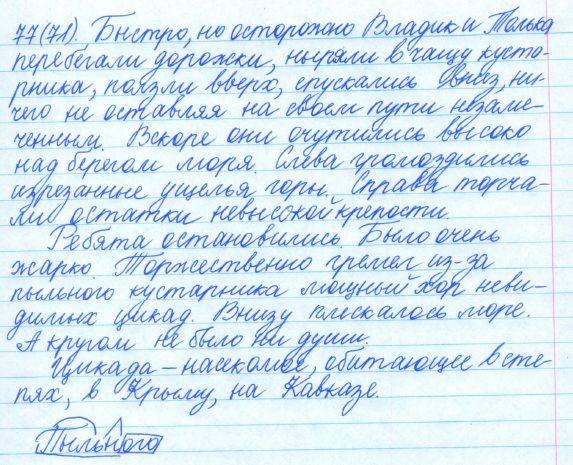 77(71). Быстро, но осторожно Владик и Толька
перебегали дорожки, ныряли в чащу куста-
рника, ползли вверх, спускались вниз, ни-
чего не оставляя на своём пути незаме-
ченным. Вскоре они очутились высоко
над берегом моря. Слева громоздились
изрезанные ущелья горы. Справа торча-
ли остатки невысокой крепости.
Ребята остановились. Было очень
жарко. Торжественно гремел из-за
пыльного кустарника мощный хор неви-
димых цикад. Внизу плескалось море.
А кругом не было ни души.
Цикада – насекомое, обитающее в сте-
пях, в Крыму, на Кавказе.
Пыльного